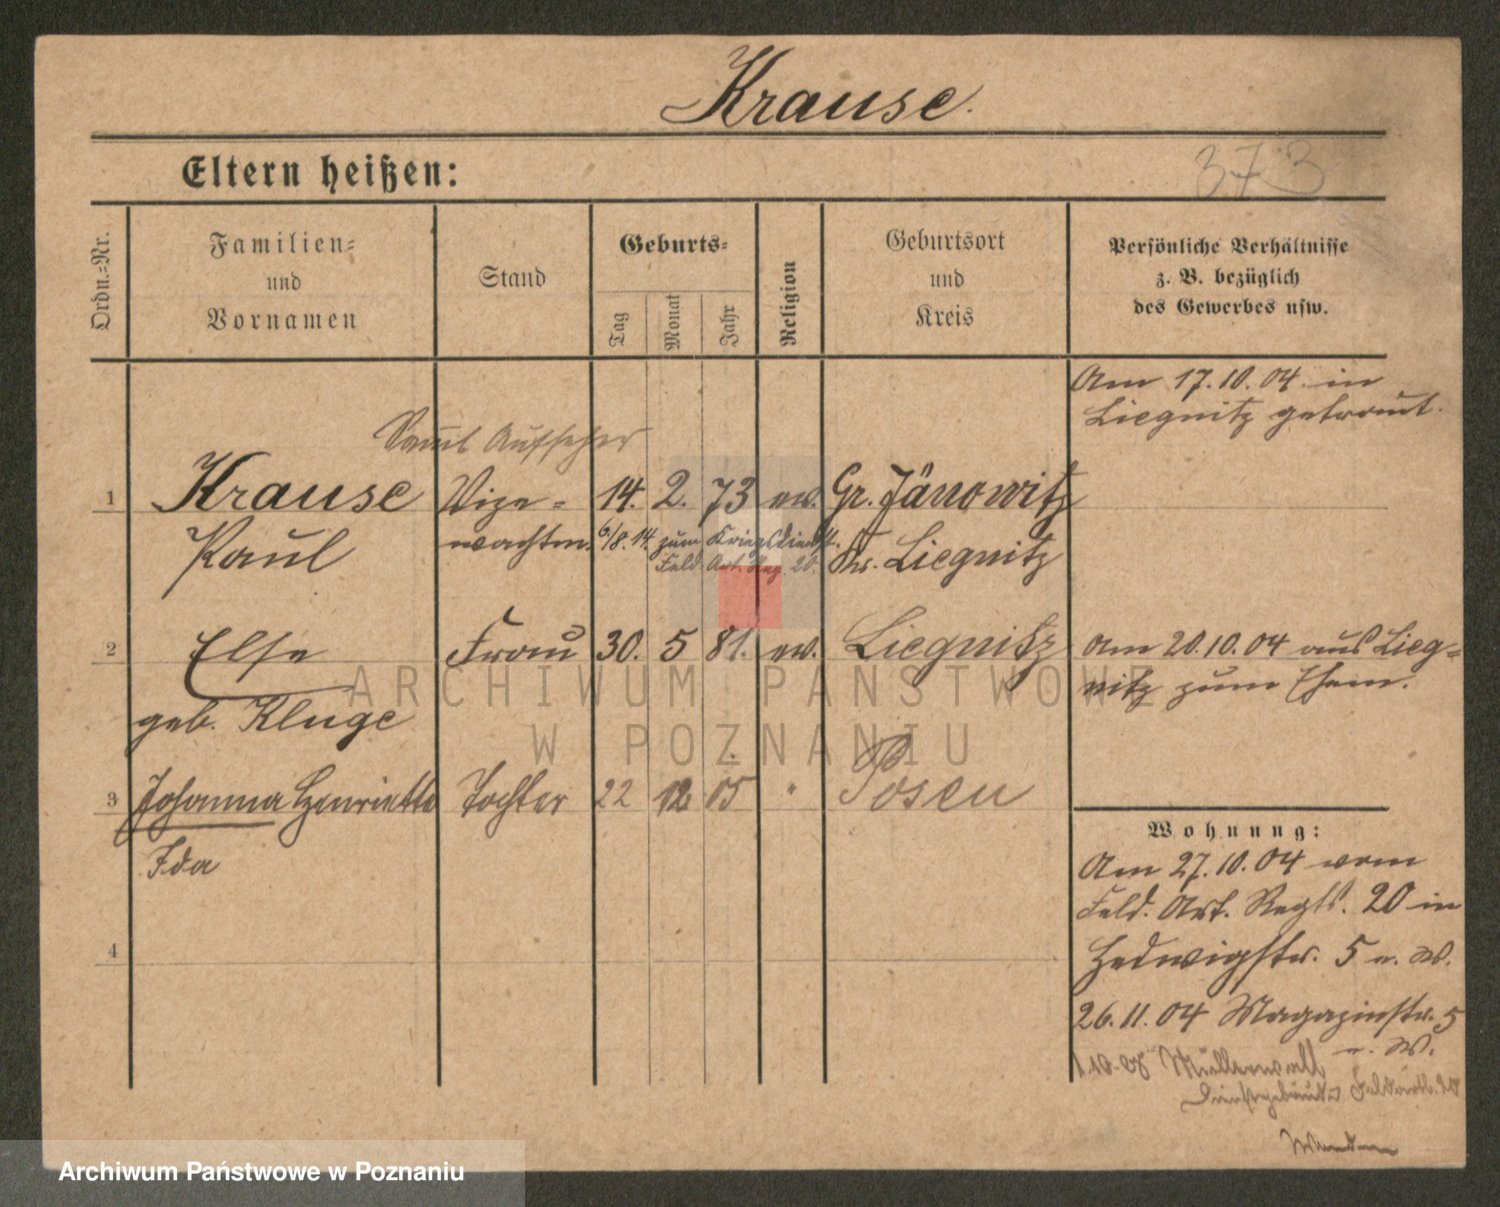 Krause.
Eltern heißen:
373
Ordn.-Nr.
Familien-
und
Vornamen
Stand
Geburts-
Tag
Monat
Jahr
Religion
Geburtsort
und
Kreis
Persönliche Verhältnisse
z. B. bezüglich
des Gewerbes usw.
Am 17.10.04. in
Liegnitz getraut.
Aufseher
1 Krause Vize- 14. 2. 73 ev. Gr. Jänowitz
Paul wachtm. 6/8.14. zum Kriegsdienst. Kr. Liegnitz
Feld Art. Reg 20.
2 Else Frau 30. 5 81. ev. Liegnitz Am 20.10.04 aus Lieg-
nitz zum Ehem.
geb. Kluge
3 Johanna Henriette Tochter 22 12 05 " Posen
Ida
4
Wohnung:
Am 27.10.04 vom
Feld. Art. Regt. 20 in
Hedwigstr. 5 n. W.
26.11.04 Magazinstr. 5
n. W.
Dienstgebäude
ARCHIWUM PAŃSTWOWE
W POZNANIU
Archiwum Państwowe w Poznaniu